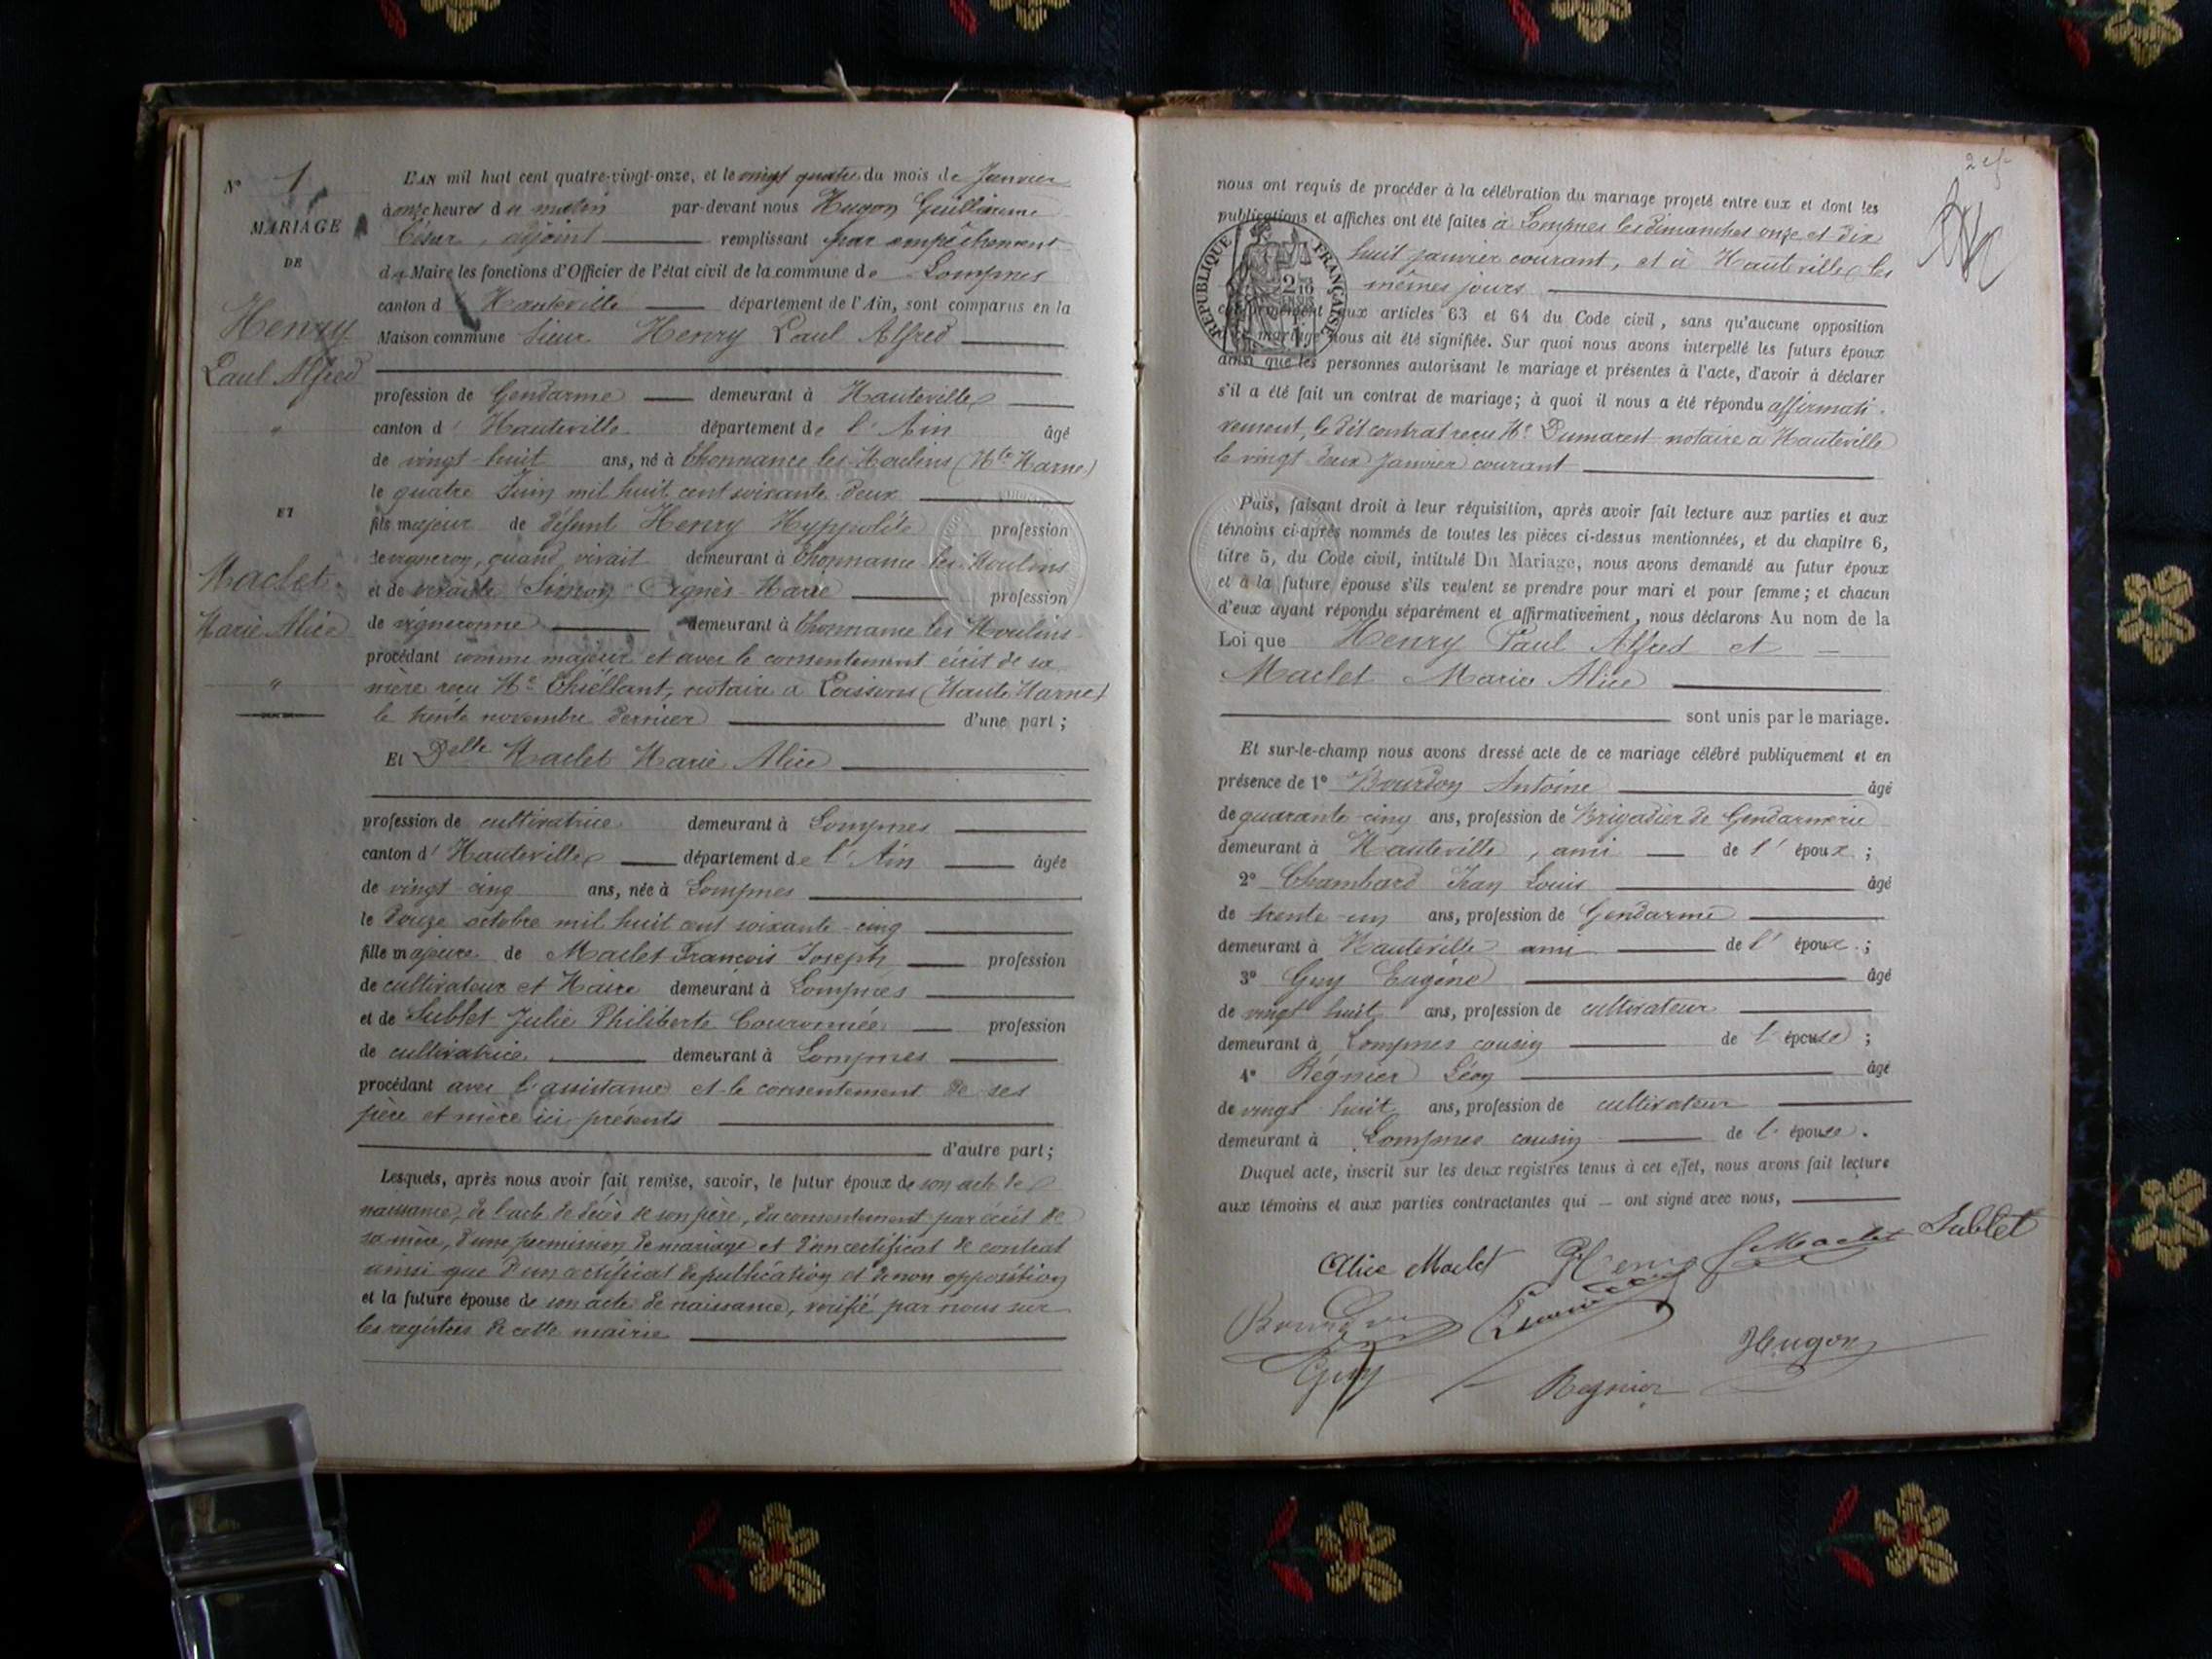 N° 1
MARIAGE
DE
Henry
Paul Alfred
"
ET
Maclet
Marie Alice
"
L'AN mil huit cent quatre-vingt-onze, et le vingt quatre du mois de Janvier
à onze heures du matin par-devant nous Hugon Guillaume
César, adjoint remplissant par empêchement
du Maire les fonctions d'Officier de l'état civil de la commune de Lompnes
canton d' Hauteville département de l'Ain, sont comparus en la
Maison commune Sieur Henry Paul Alfred
profession de Gendarme demeurant à Hauteville
canton d' Hauteville département de l'Ain âgé
de vingt-huit ans, né à Thonnance les Moulins (Hte Marne)
le quatre Juin mil huit cent soixante deux
fils majeur de défunt Henry Hyppolite profession
de vigneron, quand vivait demeurant à Thonnance les Moulins
et de vivante Simon Agnès Marie profession
de vigneronne demeurant à Thonnance les Moulins
procédant comme majeur et avec le consentement écrit de sa
mère reçu Me Thiéblant, notaire à Poissons (Haute Marne)
le trente novembre dernier d'une part;
Et Delle Maclet Marie Alice
profession de cultivatrice demeurant à Lompnes
canton d' Hauteville département de l'Ain âgée
de vingt-cinq ans, née à Lompnes
le douze octobre mil huit cent soixante-cinq
fille majeure de Maclet François Joseph profession
de cultivateur et Maire demeurant à Lompnes
et de Sublet Julie Philiberte Couronnée profession
de cultivatrice demeurant à Lompnes
procédant avec l'assistance et le consentement de ses
père et mère ici présents
d'autre part;
Lesquels, après nous avoir fait remise, savoir, le futur époux de son acte de
naissance, de l'acte de décès de son père, du consentement par écrit de
sa mère, d'une permission de mariage et d'un certificat de contrat
ainsi que d'un certificat de publication et de non opposition
et la future épouse de son acte de naissance, vérifié par nous sur
les registres de cette mairie
nous ont requis de procéder à la célébration du mariage projeté entre eux et dont les
publications et affiches ont été faites à Lompnes les dimanches onze et dix
huit janvier courant, et à Hauteville les
mêmes jours
RÉPUBLIQUE FRANÇAISE
2/10 EN SUS
conformément aux articles 63 et 64 du Code civil, sans qu'aucune opposition
mariage nous ait été signifiée. Sur quoi nous avons interpellé les futurs époux
ainsi que les personnes autorisant le mariage et présentes à l'acte, d'avoir à déclarer
s'il a été fait un contrat de mariage; à quoi il nous a été répondu affirmati-
vement, le dit contrat reçu Me Dumarest notaire à Hauteville
le vingt deux Janvier courant
Puis, faisant droit à leur réquisition, après avoir fait lecture aux parties et aux
témoins ci-après nommés de toutes les pièces ci-dessus mentionnées, et du chapitre 6,
titre 5, du Code civil, intitulé Du Mariage, nous avons demandé au futur époux
et à la future épouse s'ils veulent se prendre pour mari et pour femme; et chacun
d'eux ayant répondu séparément et affirmativement, nous déclarons Au nom de la
Loi que Henry Paul Alfred et
Maclet Marie Alice
sont unis par le mariage.
Et sur-le-champ nous avons dressé acte de ce mariage célébré publiquement et en
présence de 1° Bourdon Antoine âgé
de quarante-cinq ans, profession de Brigadier de Gendarmerie
demeurant à Hauteville, ami de l'époux;
2° Chambard Jean Louis âgé
de trente-un ans, profession de Gendarme
demeurant à Hauteville ami de l'époux;
3° Guy Eugène âgé
de vingt huit ans, profession de cultivateur
demeurant à Lompnes cousin de l'épouse;
4° Régnier Léon âgé
de vingt huit ans, profession de cultivateur
demeurant à Lompnes cousin de l'épouse.
Duquel acte, inscrit sur les deux registres tenus à cet effet, nous avons fait lecture
aux témoins et aux parties contractantes qui ont signé avec nous,
Alice Maclet Henry Maclet Sublet
Bourdon
Guy Regnier Hugon